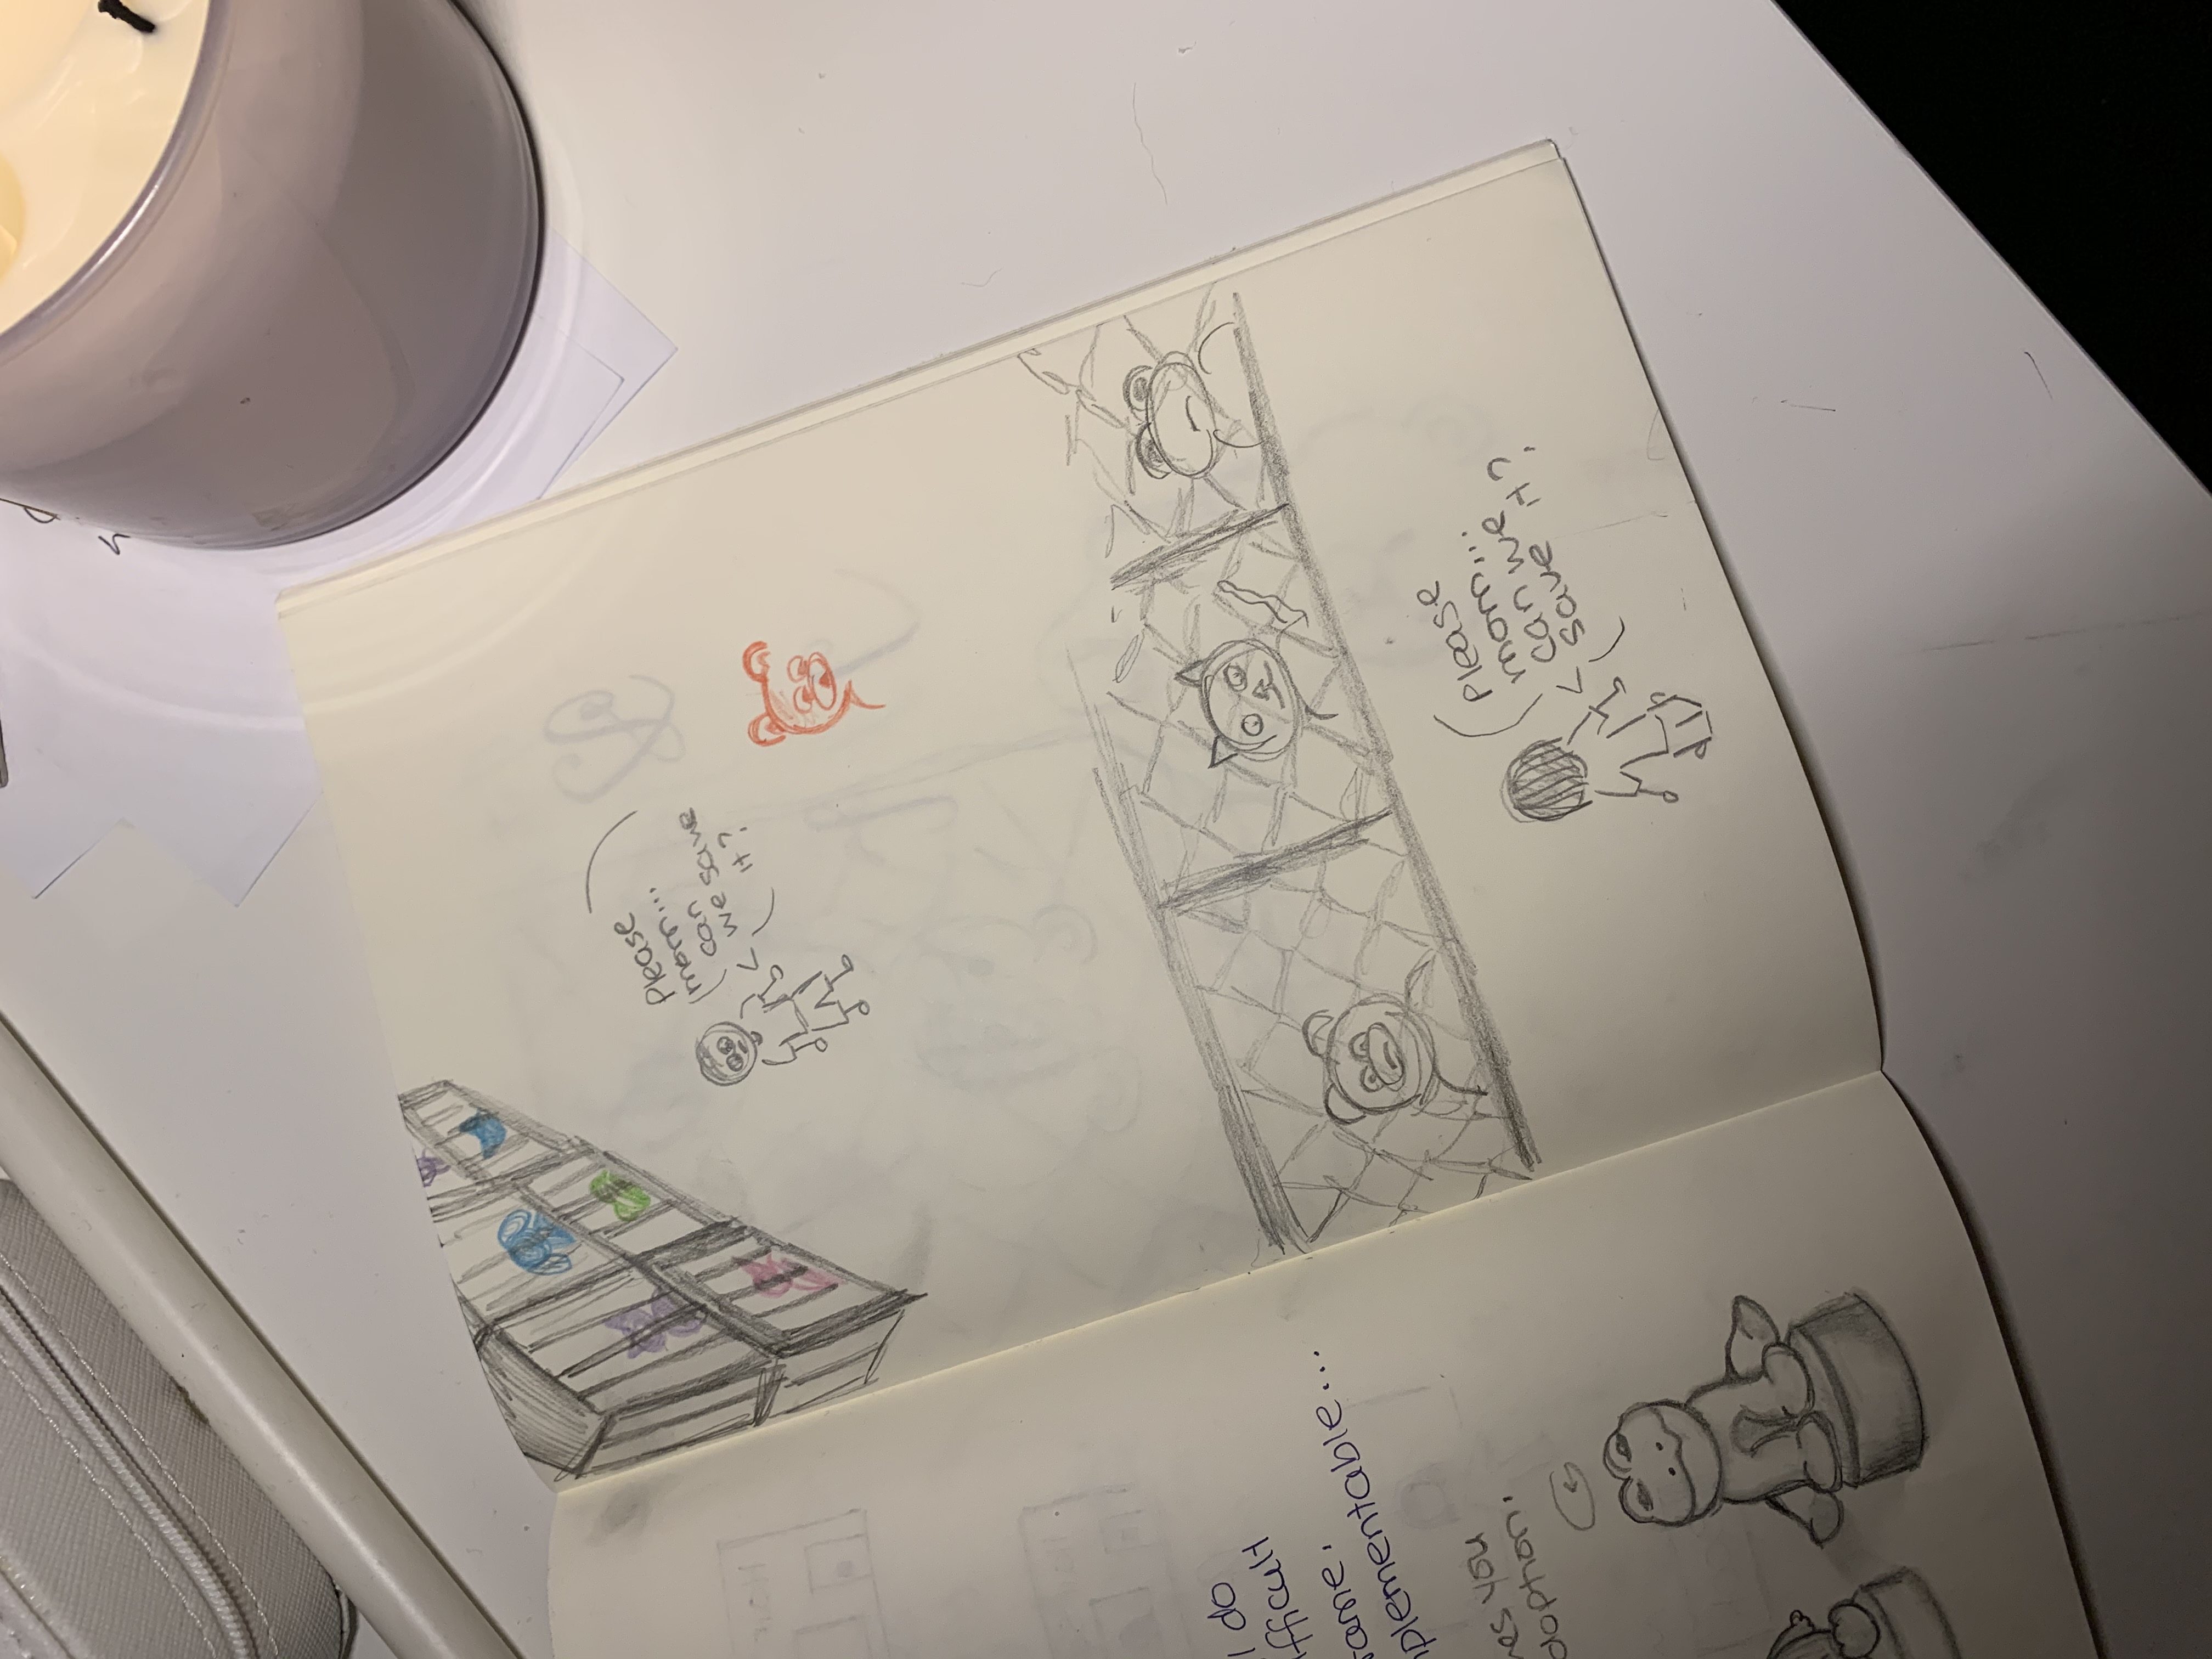 I do
difficult
mplementable...
you
doption.
Please
mom...
can
we save
it?
Please
mom...
can we
save it?